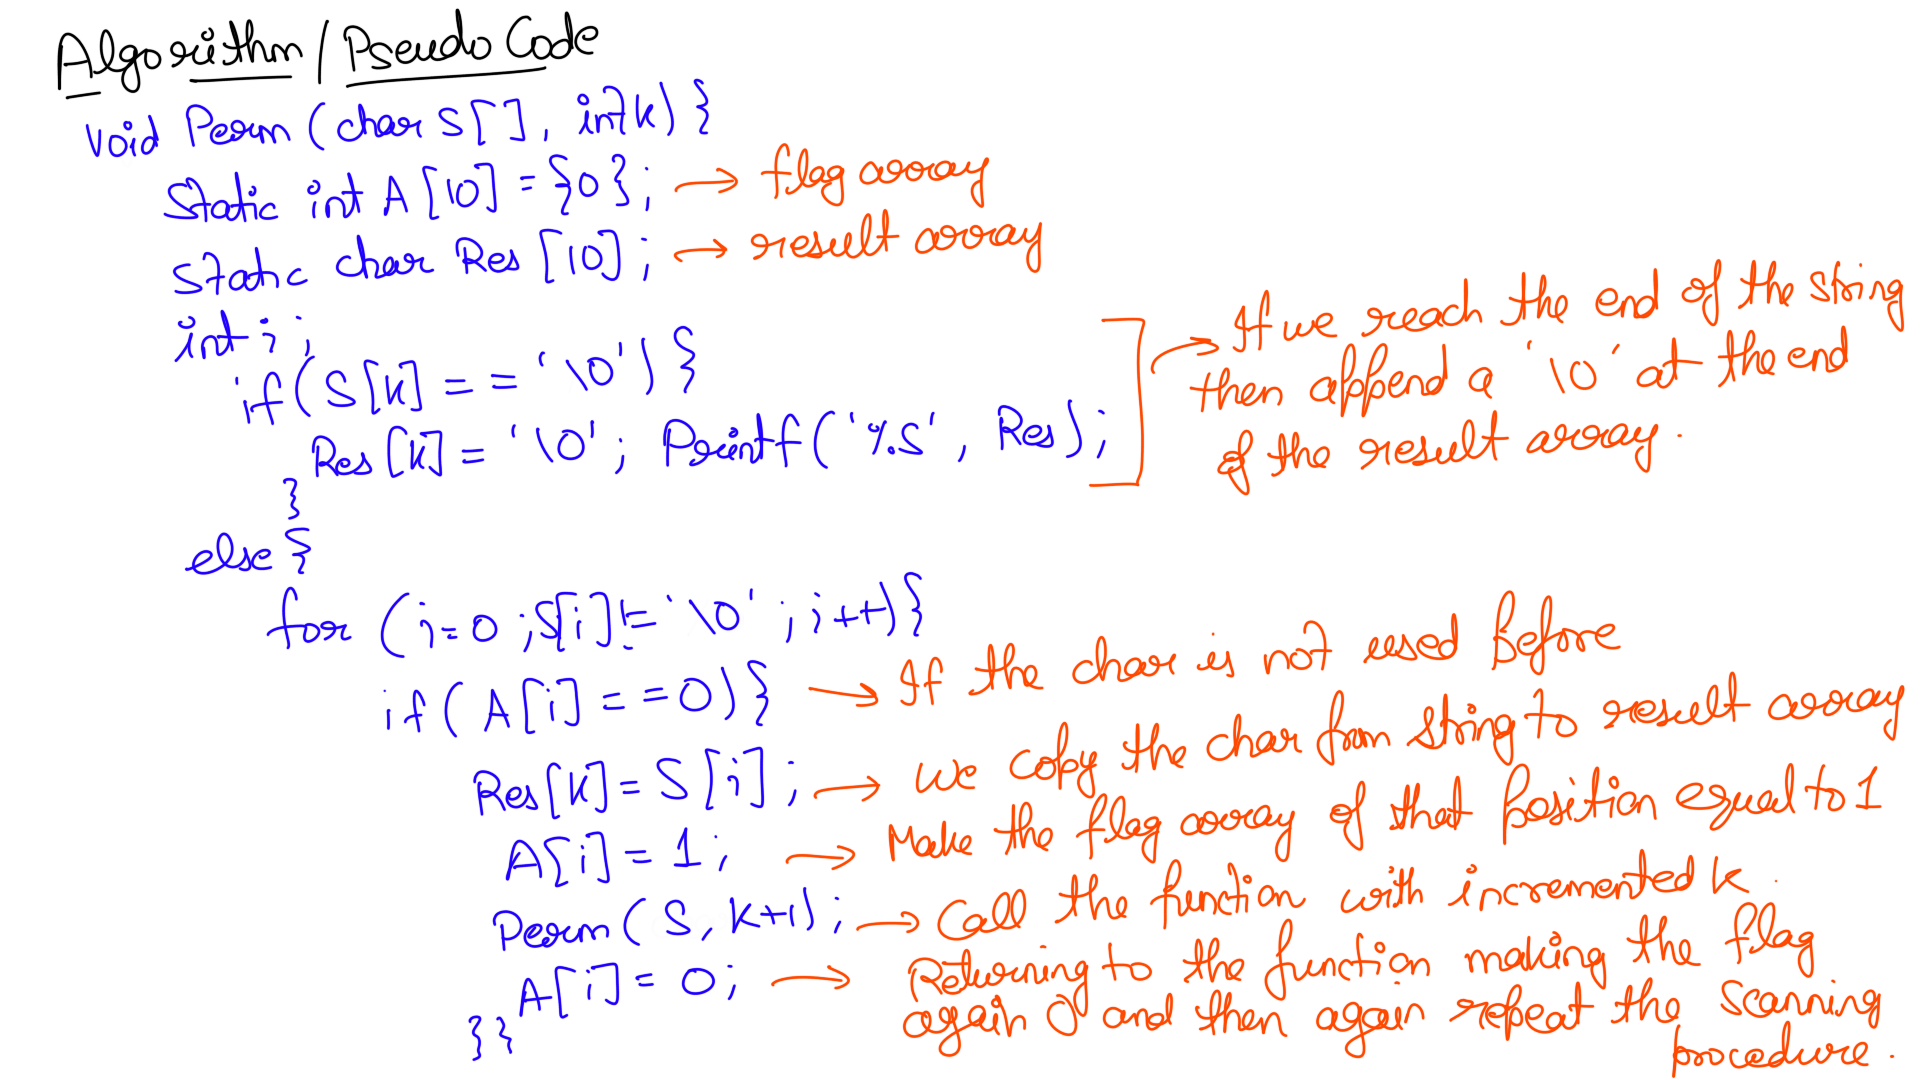 Algorithm / Pseudo Code
void Perm (char S[], int k) {
Static int A[10] = {0}; → flag array
static char Res [10]; → result array
int i;
if (S[k] == '\0') {
Res [k] = '\0'; Printf ('%s', Res);
}
→ If we reach the end of the string
then append a '\0' at the end
of the result array.
else {
for (i=0; S[i] != '\0'; i++) {
if (A[i] == 0) { → If the char is not used before
Res[k] = S[i]; → we copy the char from string to result array
A[i] = 1; → Make the flag array of that position equal to 1
Perm (S, k+1); → Call the function with incremented k.
A[i] = 0; → Returning to the function making the flag
again 0 and then again repeat the scanning
procedure.
}}